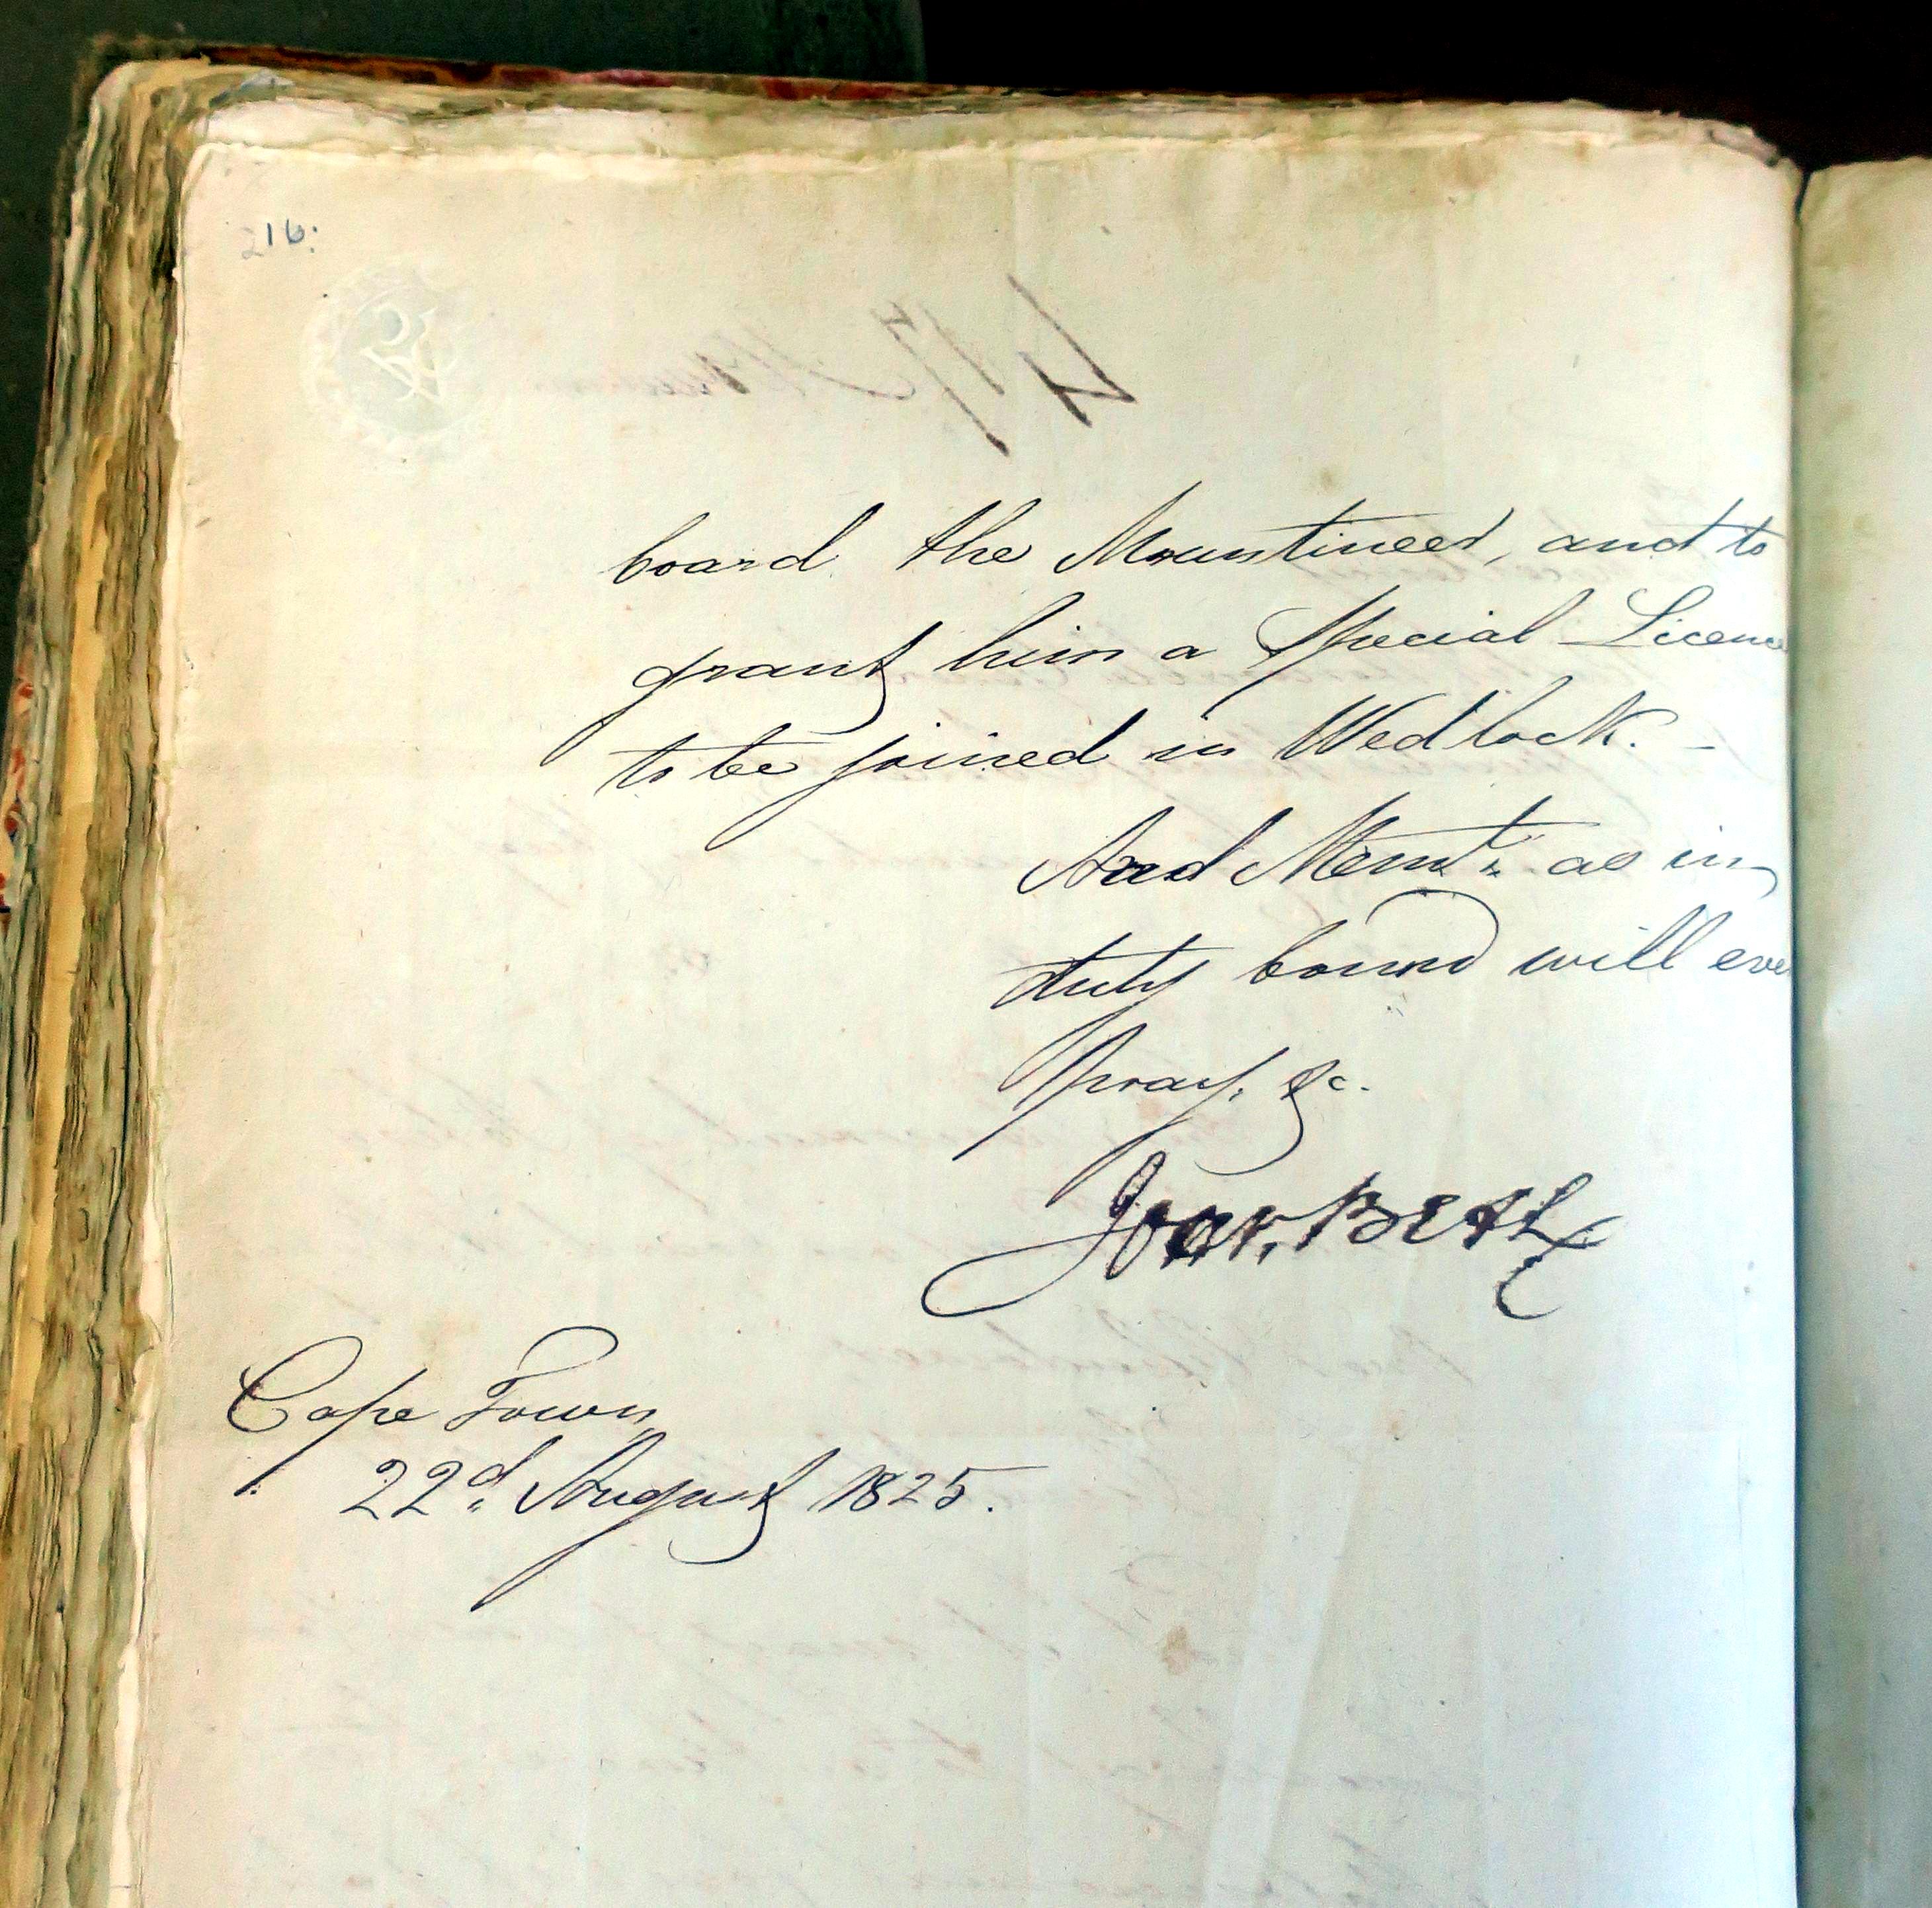 216:
417
board the Mountineer, and to
grant him a Special Licence
to be joined in Wedlock. -
And Memt. as in
duty bound will ever
pray. &c.
Cape Town
22d. August 1825.